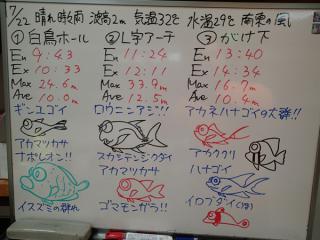 7/22 晴れ時々雨 波高2m 気温32℃ 水温29℃ 南東の風
①白鳥ホール
En 9:43
Ex 10:33
Max 24.6m
Ave 10.0m
ギンユゴイ
アカマツカサ
ナポレオン!!
イスズミの群れ
②L字アーチ
En 11:24
Ex 12:11
Max 33.9m
Ave 12.5m
ロウニンアジ!!
スカシテンジクダイ
アカマツカサ
ゴマモンガラ!!
③がけ下
En 13:40
Ex 14:34
Max 16.7m
Ave 10.4m
アカネハナゴイの大群!!
アカククリ
ハナゴイ
イロブダイ